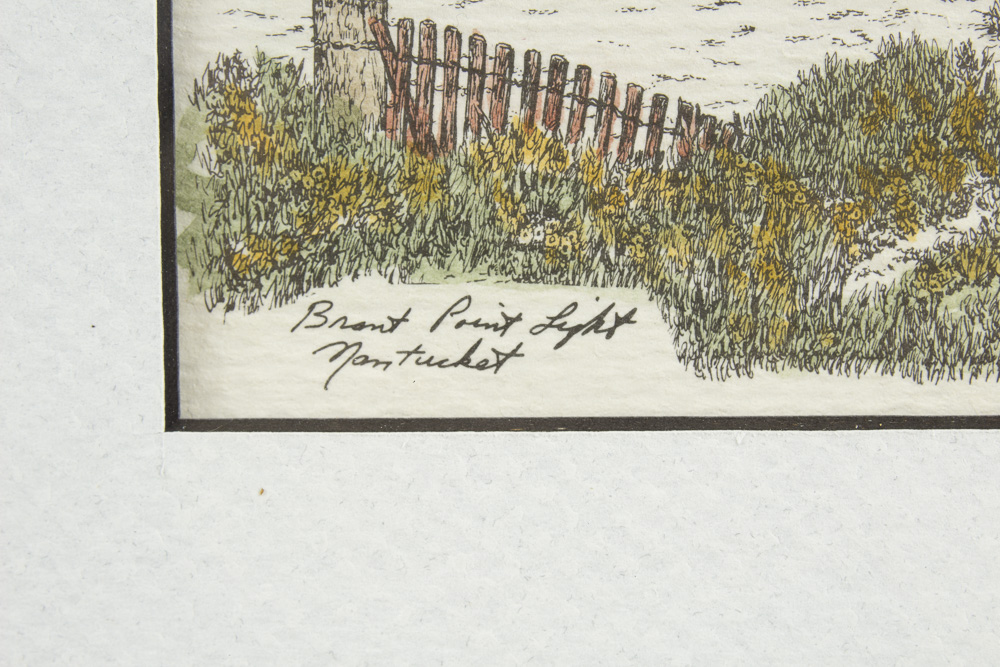 Brant Point Light
Nantucket